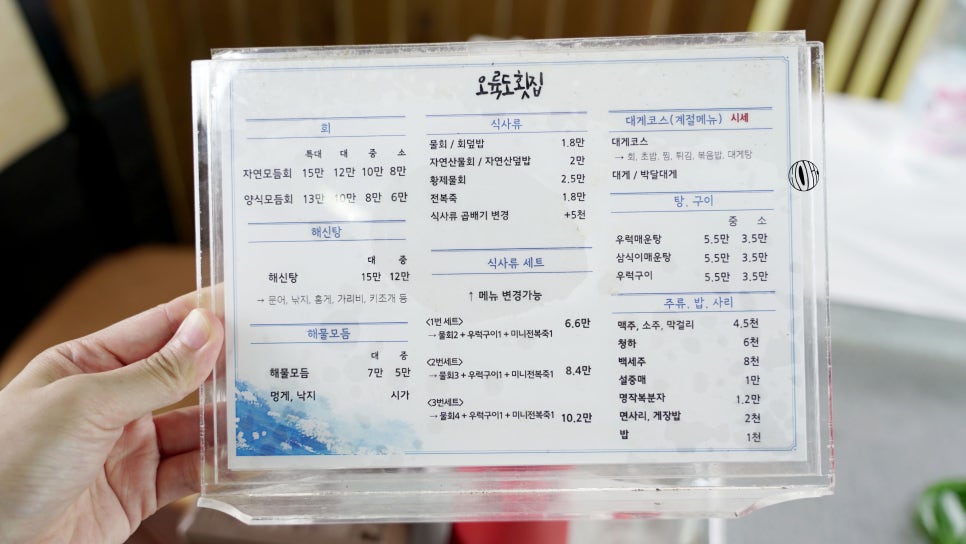 오륙도횟집
회
특대 대 중 소
자연모듬회 15만 12만 10만 8만
양식모듬회 13만 10만 8만 6만
해신탕
대 중
해신탕 15만 12만
→ 문어, 낙지, 홍게, 가리비, 키조개 등
해물모듬
대 중
해물모듬 7만 5만
멍게, 낙지 시가
식사류
물회 / 회덮밥 1.8만
자연산물회 / 자연산덮밥 2만
황제물회 2.5만
전복죽 1.8만
식사류 곱배기 변경 +5천
식사류 세트
↑ 메뉴 변경가능
<1번 세트> 6.6만
→ 물회2 + 우럭구이1 + 미니전복죽1
<2번세트>
→ 물회3 + 우럭구이1 + 미니전복죽1 8.4만
<3번세트>
→ 물회4 + 우럭구이1 + 미니전복죽1 10.2만
대게코스(계절메뉴) 시세
대게코스
→ 회, 초밥, 찜, 튀김, 볶음밥, 대게탕
대게 / 박달대게
탕, 구이
중 소
우럭매운탕 5.5만 3.5만
삼식이매운탕 5.5만 3.5만
우럭구이 5.5만 3.5만
주류, 밥, 사리
맥주, 소주, 막걸리 4.5천
청하 6천
백세주 8천
설중매 1만
명작복분자 1.2만
면사리, 게장밥 2천
밥 1천